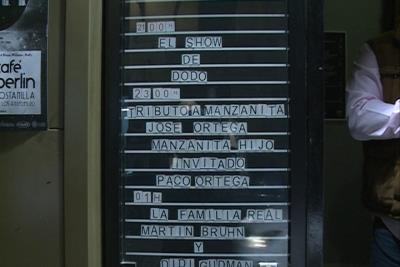 café
berlin
COSTANILLA
EL SHOW
DE
DODO
23:00H
TRIBUTO A MANZANITA
JOSE ORTEGA
MANZANITA HIJO
INVITADO
PACO ORTEGA
01H
LA FAMILIA REAL
MARTIN BRUHN
Y
DIDI GUDMAN